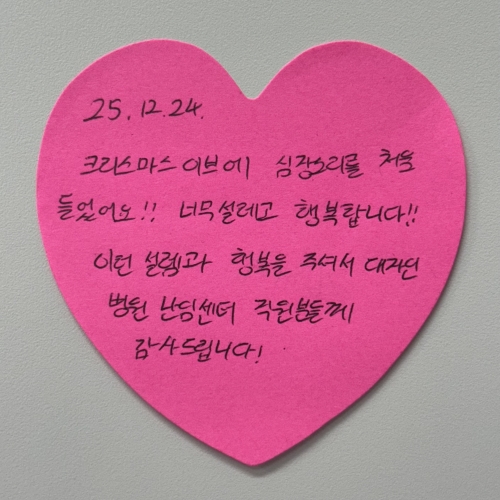 25. 12. 24.
크리스마스 이브에 심장소리를 처음
들었어요!! 너무 설레고 행복합니다!!
이런 설렘과 행복을 주셔서 대자인
병원 난임센터 직원분들께
감사드립니다!